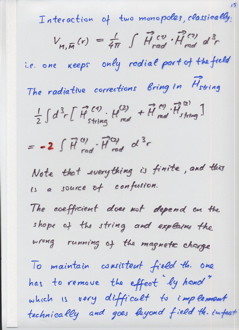 15
Interaction of two monopoles, classically:
V_{M,M̄}(r) = 1/4π ∫ H⃗_{rad}^{(1)} · H⃗_{rad}^{(2)} d³r
i.e. one keeps only radial part of the field
The radiative corrections bring in H⃗_{string}
1/2 ∫ d³r [ H⃗_{string}^{(1)} · H⃗_{rad}^{(2)} + H⃗_{rad}^{(1)} · H⃗_{string}^{(2)} ]
= -2 ∫ H⃗_{rad}^{(1)} · H⃗_{rad}^{(2)} d³r
Note that everything is finite, and this
is a source of confusion.
The coefficient does not depend on the
shape of the string and explains the
wrong running of the magnetic charge
To maintain consistent field th. one
has to remove the effect "by hand"
which is very difficult to implement
technically and goes beyond field th. in fact